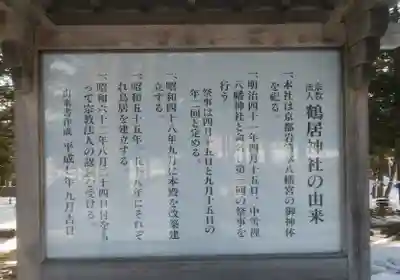 宗教法人 鶴居神社の由来
一、本社は京都岩清水八幡宮の御神体
を祀る。
一、明治四十一年四月十五日、中雪裡
八幡神社と命名し第一回の祭事を
行う
祭事は四月十五日と九月十五日の
年二回と定める。
一、昭和四十八年九月に本殿を改築建
立する。
一、昭和五十五年、五十八年にそれぞ
れ鳥居を建立する
一、昭和六十二年八月二十四日付をも
って宗教法人の認可を受ける。
平成七年九月吉日